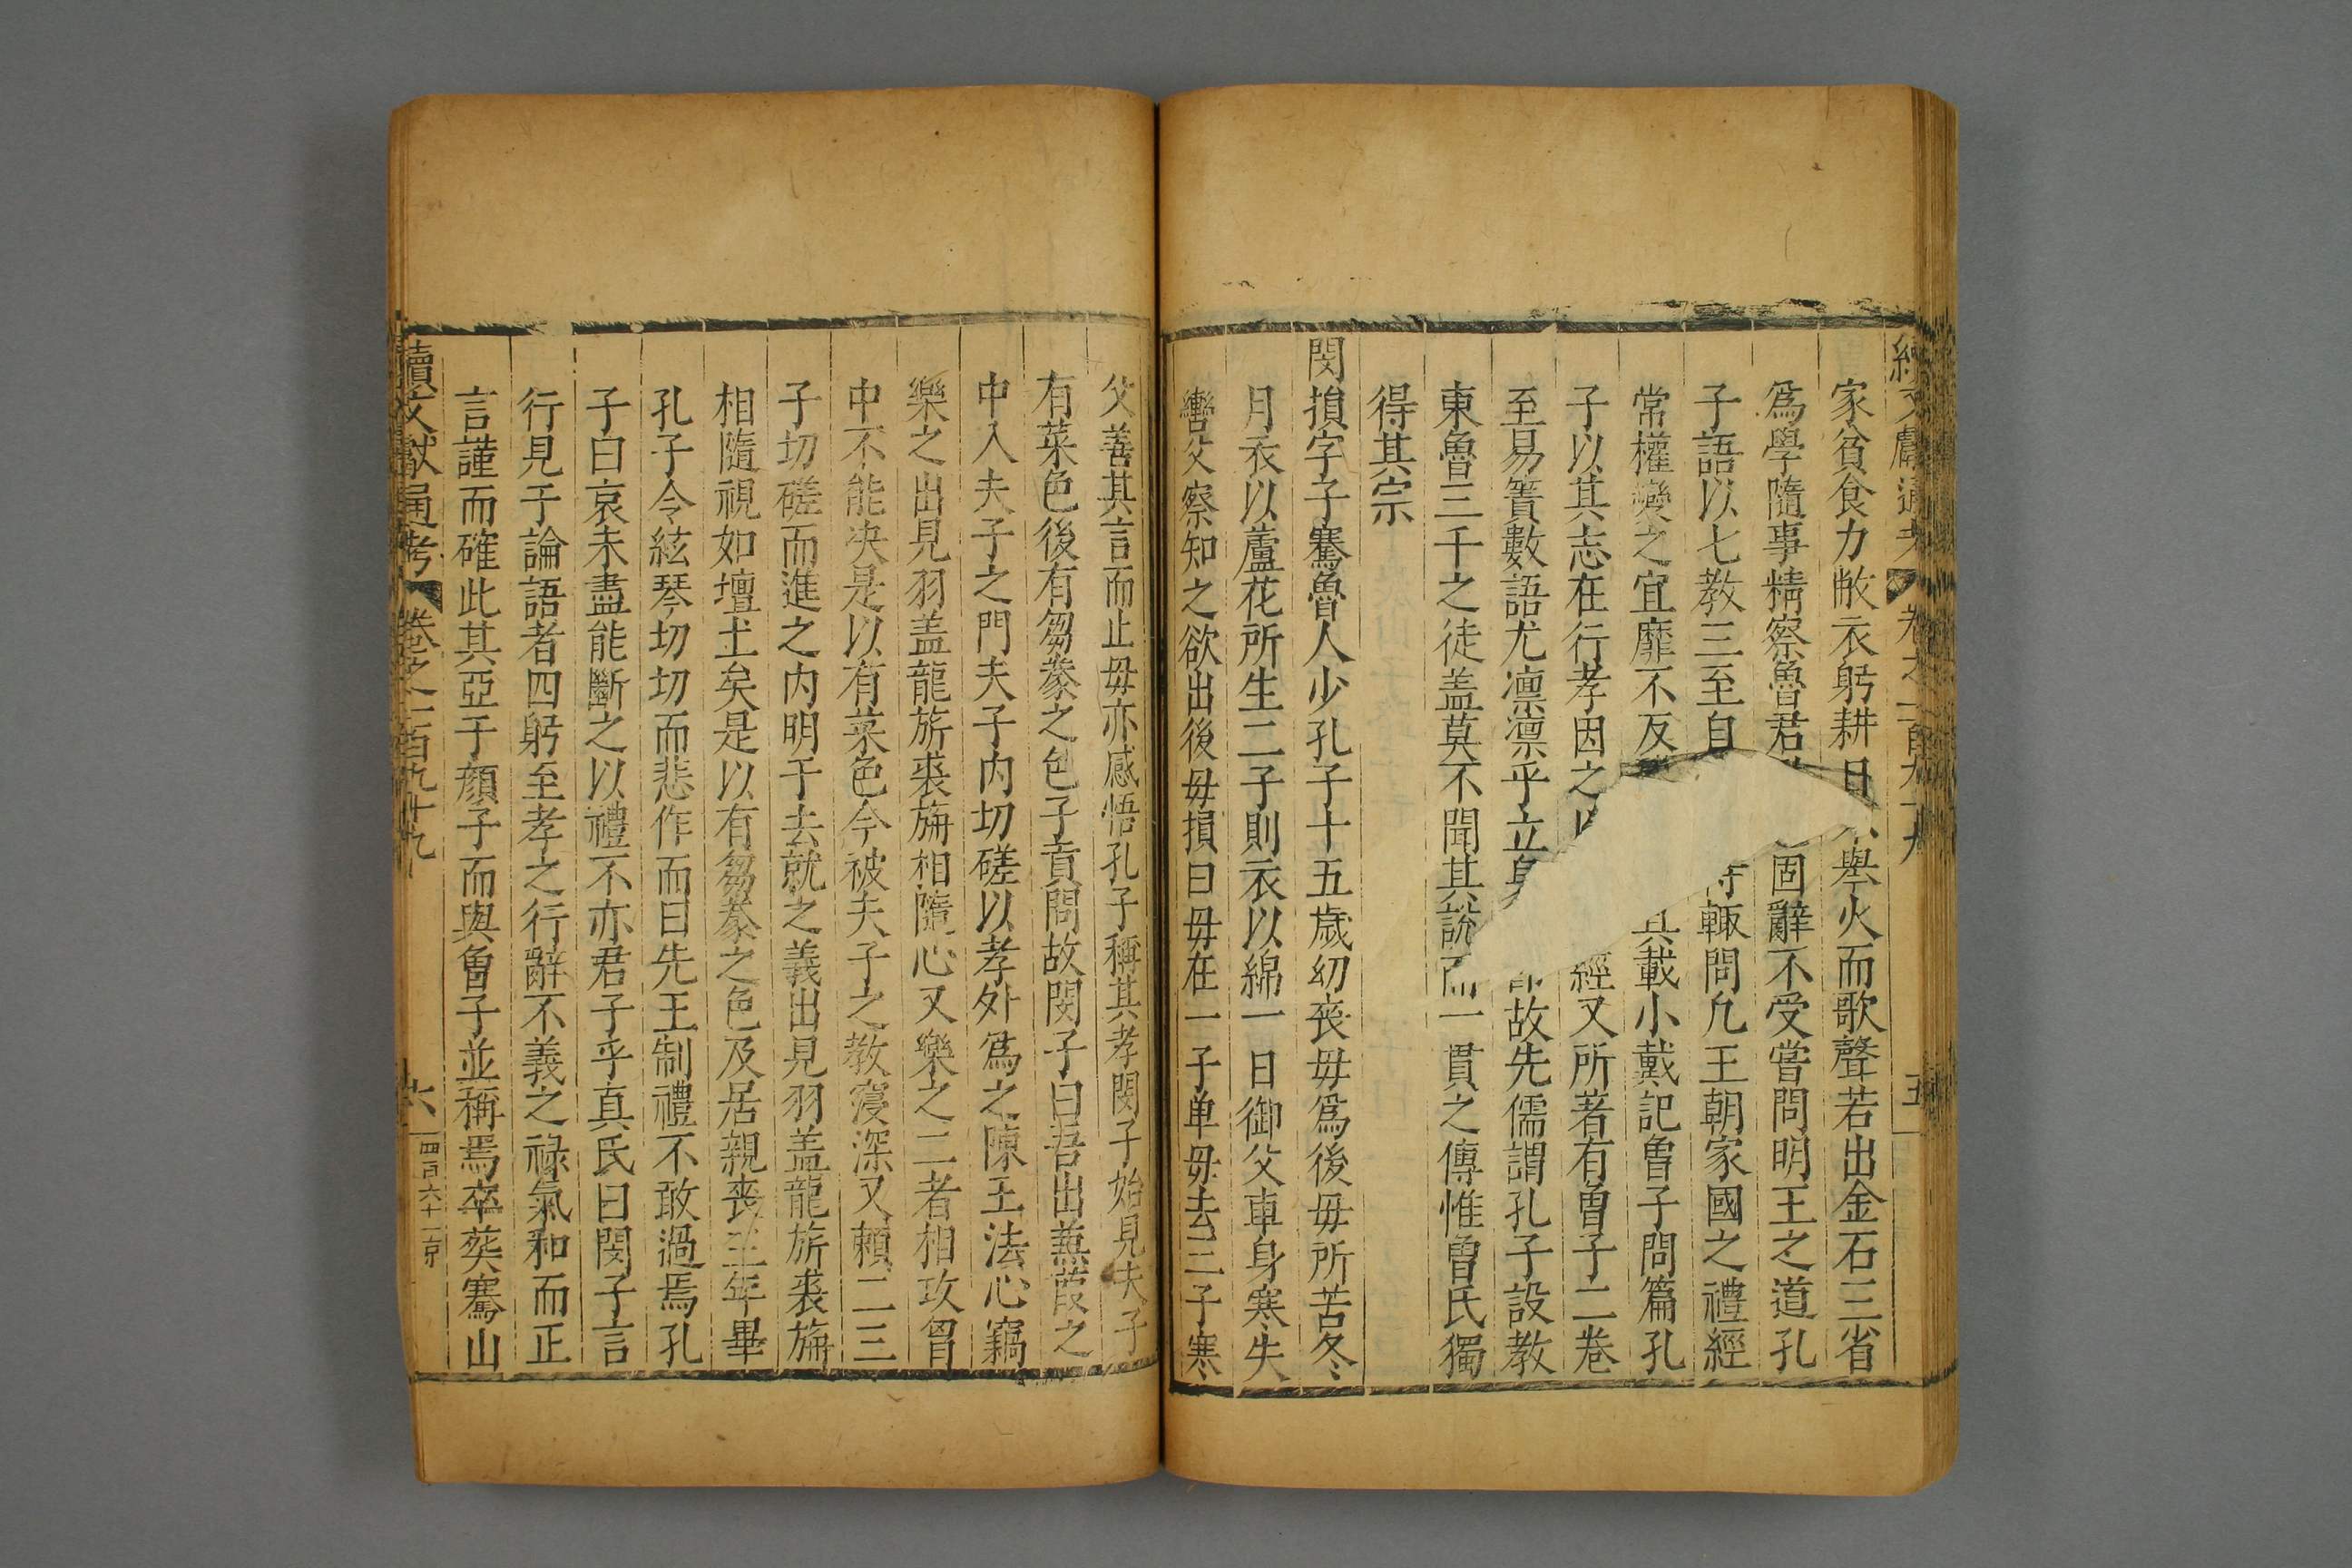 續文獻通考 卷之一百九十九 五
家貧食力敝衣躬耕日不舉火而歌聲若出金石三省
爲學隨事精察魯君固辭不受嘗問明王之道孔
子語以七教三至自輙問凢王朝家國之禮經
常權變之宜靡不反具載小戴記曾子問篇孔
子以其志在行孝因之以經又所著有曾子二卷
至易簀數語尤凛凛乎立身故先儒謂孔子設教
東魯三千之徒盖莫不聞其說而一貫之傳惟曾氏獨
得其宗
閔損字子騫魯人少孔子十五歲幼喪毋爲後毋所苦冬
月衣以蘆花所生二子則衣以綿一日御父車身寒失
轡父察知之欲出後毋損曰毋在一子单毋去三子寒
父善其言而止毋亦感悟孔子稱其孝閔子始見夫子
有菜色後有芻豢之色子貢問故閔子曰吾出蒹葭之
中入夫子之門夫子内切磋以孝外爲之陳王法心竊
樂之出見羽盖龍旂裘旃相隨心又樂之二者相攻胷
中不能决是以有菜色今被夫子之教寖深又頼二三
子切磋而進之内明于去就之義出見羽盖龍旂裘旃
相隨視如壇土矣是以有芻豢之色及居親喪三年畢
孔子令絃琴切切而悲作而曰先王制禮不敢過焉孔
子曰哀未盡能斷之以禮不亦君子乎真氏曰閔子言
行見于論語者四躬至孝之行辭不義之禄氣和而正
言謹而確此其亞于顔子而與曾子並稱焉卒葬騫山
續文獻通考 卷之一百九十九 六 四百六十一